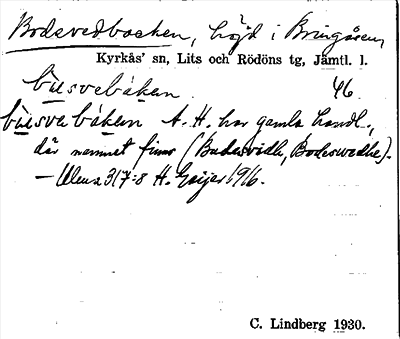 Bodsvedbacken, höjd i Bringåsen,
Kyrkås' sn, Lits och Rödöns tg, Jämtl. l.
bu̇svebȧken 46.
bu̇sve bȧken A. H. har gamla handl.,
där namnet finns (Budesvidh, Bodeswedhe).
317:8 H. Geijer 1916.
C. Lindberg 1930.